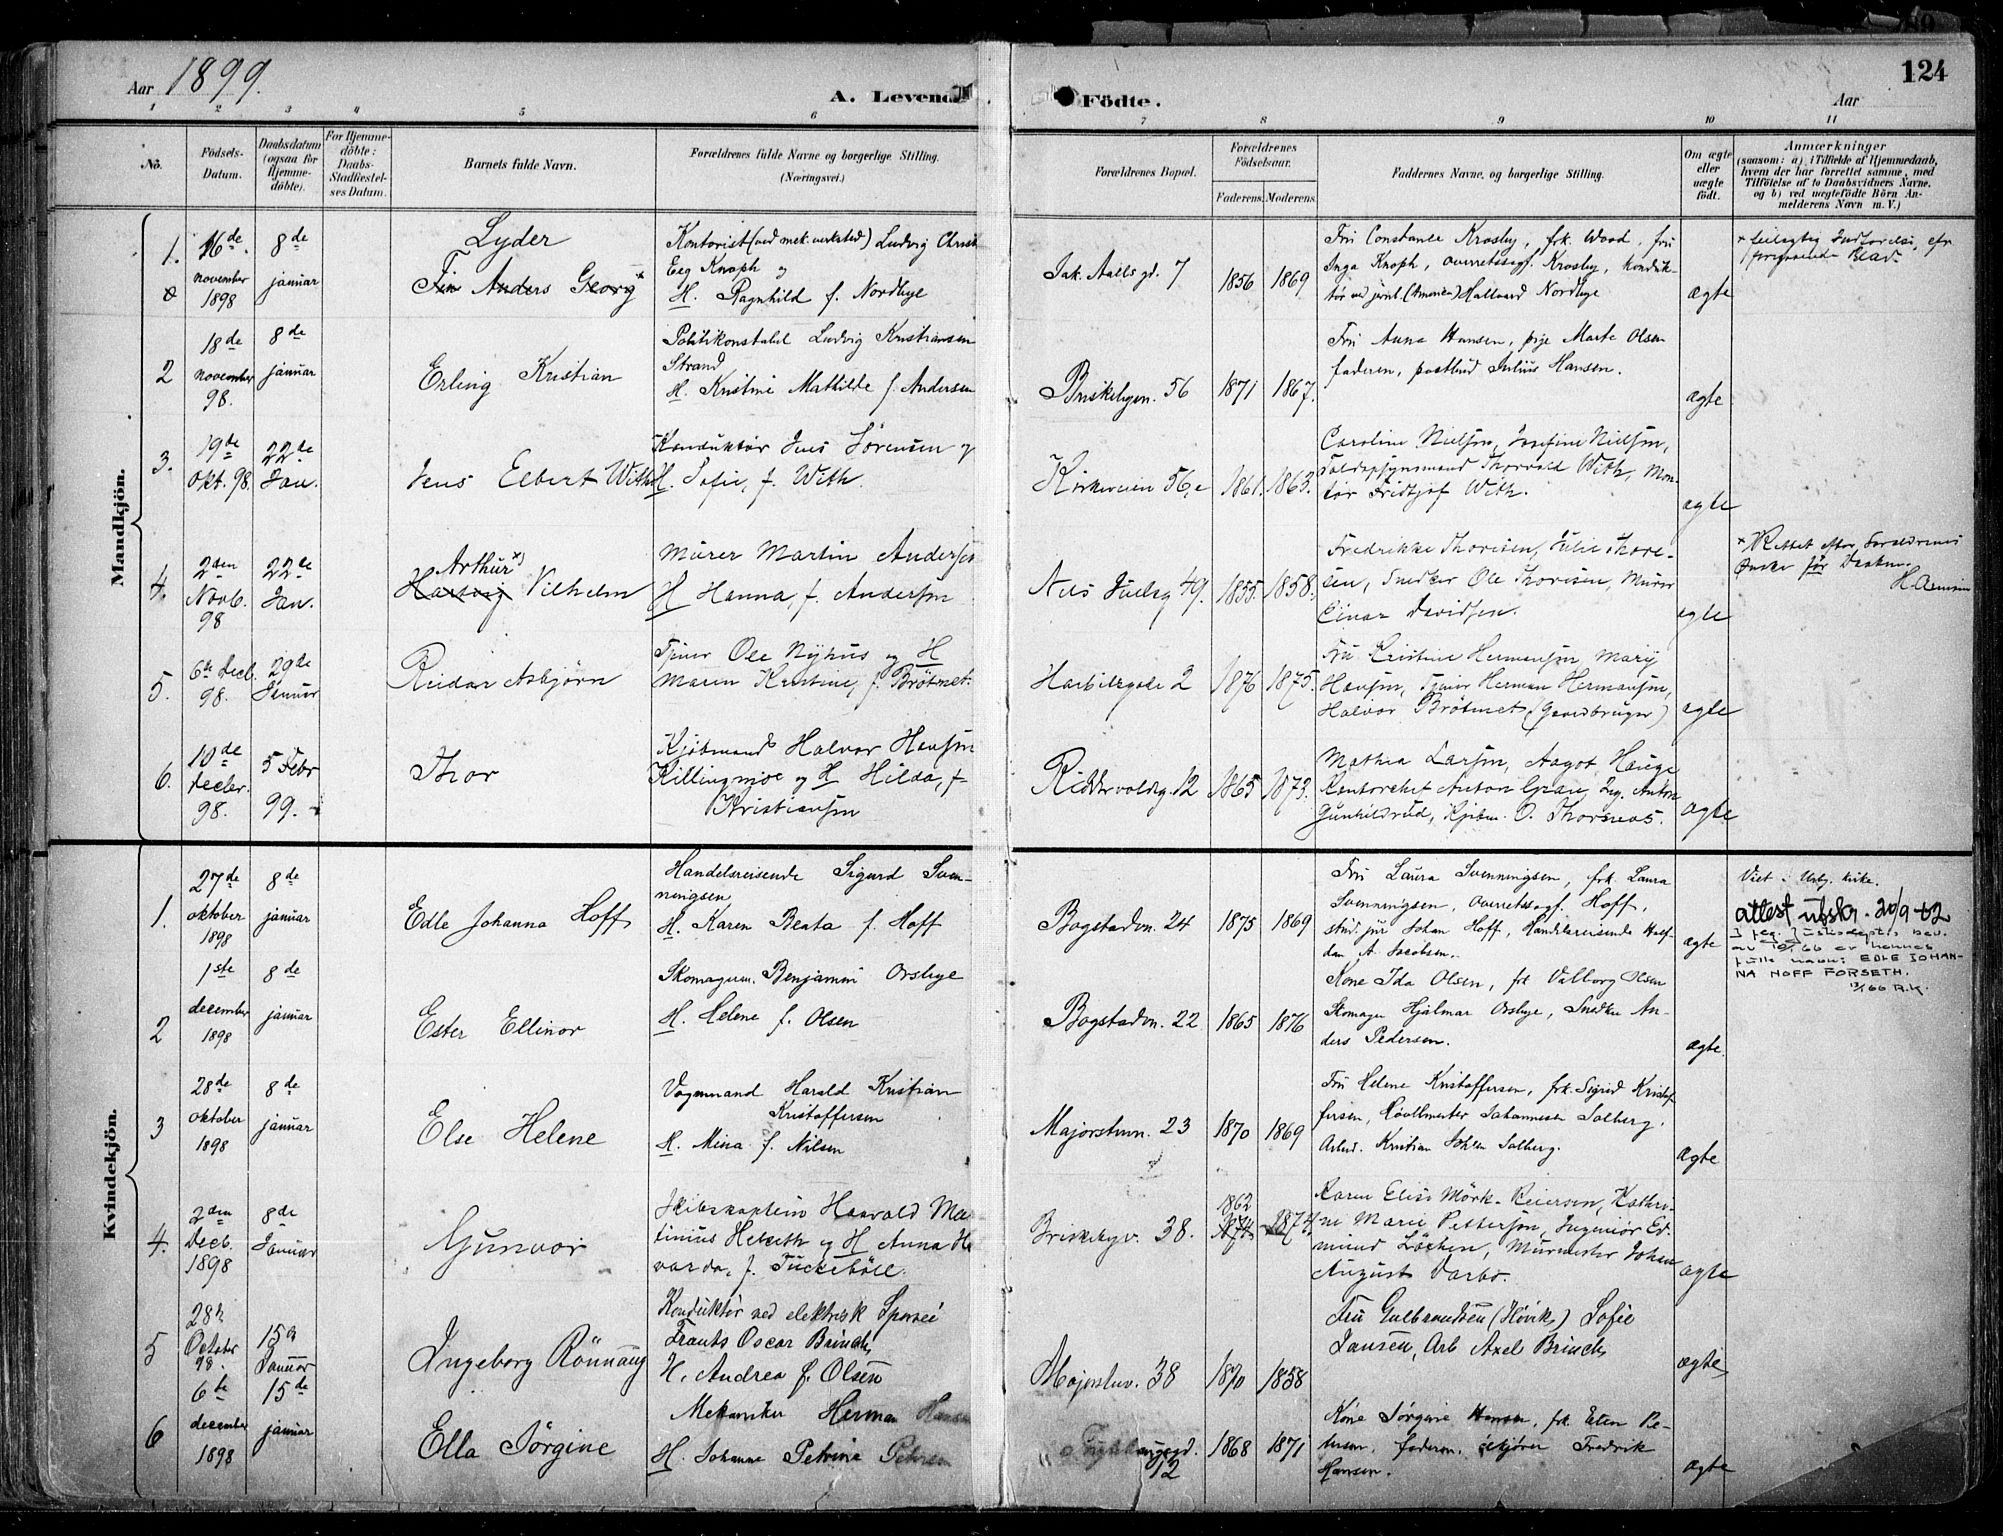 124
Aar 1899.
A. Levende Födte.
Aar
1 2 3 4 5 6 7 8 9 10 11
No.
Födsels-Datum.
Daabsdatum (ogsaa for Hjemme-döbte).
For Hjemme-döbte: Daabs-Stadfæstel-ses Datum.
Barnets fulde Navn.
Forældrenes fulde Navne og borgerlige Stilling. (Næringsvei.)
Forældrenes Bopæl.
Forældrenes Födselsaar.
Faderens. Moderens.
Faddernes Navne, og borgerlige Stilling.
Om ægte eller uægte födt.
Anmærkninger
(saasom: a) i Tilfælde af Hjemmedaab,
hvem der har forrettet samme, med
Tilföielse af to Daabsvidners Navne,
og b) ved uægtefödte Börn An-
melderens Navn m. V.)
Mandkjön.
1. 16de november 1898
8de januar
Lyder
Fin Anders Georg
Kontorist (ved mek. verksted) Ludvig Christ
Eeg Knoph og
H. Ragnhild f. Nordbye
Jak. Aallsgd. 7
1856 1869
Fru Constance Krosby, frk. Wood, fru
Inga Knoph, overretssagf. Krosby, konduk-
tør ved jernb. (Amerika) Hallvard Nordbye
ægte
2 18de november 98.
8de januar
Erling Kristian
Politikonstabel Ludvig Kristiansen
Strand
H. Kristine Mathilde f. Andersen
Briskebyvn. 56
1871 1867.
Fru Anna Hansen, pige Marte Olsen
faderen, postbud Julius Hansen.
ægte
3. 19de Okt. 98.
22de Jan.
Jens Elbert With
Konduktør Jens Sörensen og
H. Sofie, f. With.
Kirkeveien 56,c
1861. 1863.
Caroline Nielsen, Josefine Nielsen,
Toldopsynsmand Thorvald With, Mon-
tör Fridtjof With.
ægte
4. 2den Novb. 98
22de Jan.
Arthur x)
Hartvig Vilhelm
Murer Martin Andersen
H Hanna, f. Andersen
Nils Juelsg 49.
1855. 1858.
Fredrikke Thoresen, Julie Thore-
sen, Snedker Ole Thoresen, Murer
Einar Davidsen.
ægte
x Rettet efter Forældrenes
Ønske før Daaben.
5. 6te Decb. 98.
29de Januar
Reidar Asbjörn
Tjener Ole Nyhus og H
Maren Kristine, f. Brötmet.
Harbitzgade 2
1876 1875.
Fru Kristine Hermansen, Mary
Hansen, Tjener Herman Hermansen,
Halvor Brötmet (Gaardbruger)
ægte
6. 10de Decbr. 98.
5 Febr 99.
Thor
Kjöbmand Halvor Hansen
Killingmoe og H Hilda, f.
Kristiansen
Riddervoldsg. 12
1865 1873.
Mathea Larsen, Aagot Hauge
Kontorchef Anton Gran, Anton
Gunhildrud, Kjöbm. O. Thornæs.
ægte
Kvindekjön.
1. 27de oktober 1898
8de januar
Edle Johanna Hoff
Handelsreisende Sigurd Sven-
ningsen
H. Karen Beata f. Hoff
Bogstadvn. 24
1875 1869
Fru Laura Svenningsen, frk. Laura
Svenningsen, overretssagf. Hoff,
stud. jur Johan Hoff, Handelsreisende Half-
dan A. Jacobsen.
ægte
Viet i Urbg. kirke.
attest utskr. 20/9-42
I flg. Justisdepts bev.
av 10/1 66 er hennes
fulle navn: EDLE JOHAN-
NA HOFF FORSETH.
13/1 66 R.K.
2 1ste december 1898
8de januar
Ester Ellinor
Skomagerm. Benjamin Orsbye
H. Helene f. Olsen
Bogstadvn. 22
1865 1876
Kone Ida Olsen, frk Valborg Olsen
Skomager Hjalmar Orsbye, Snedker An-
ders Pedersen.
ægte.
3 28de oktober 1898
8de januar
Else Helene
Vognmand Harald Kristian
Kristoffersen
H. Mina f. Nilsen
Majorstuvn. 23
1870 1869
Fru Helene Kristoffersen, frk. Sigrid Kristof-
fersen, Hovllmester Johannesen Solberg,
Arbeid. Kristian Johan Solberg.
ægte
4. 2den Decb. 1898
8de Januar
Gunvor
Skibskaptein Haavald Mar-
tinius Heseth og H Anna Ha-
varda, f. Tuckeböll.
Briskebyv. 38.
1862
1874 1874.
Karen Elise Mörk-Reiersen, Kathri-
ne Marie Pettersen, Ingeniör Ed-
mund Löchen, Murmester Johan
August Varbo.
ægte
5 28de October 98.
15de Januar
Ingeborg Rönnaug
Konduktör ved elektrisk Sporvei
Frants Oscar Brinch,
H. Andrea f. Olsen
Majorstuv. 38
1870 1858
Fru Gulbrandsen (Hövik,) Sofie
Jansen, Arb Axel Brinch,
ægte
6 6te december 1898
15de januar
Ella Jörgine
Mekaniker Herman Hansen
H. Johanne Petrine Petersen
12
1868 1871
Kone Jörgine Hansen, frk. Elen Pe-
tersen, faderen, Fredrik
Hansen.
ægte